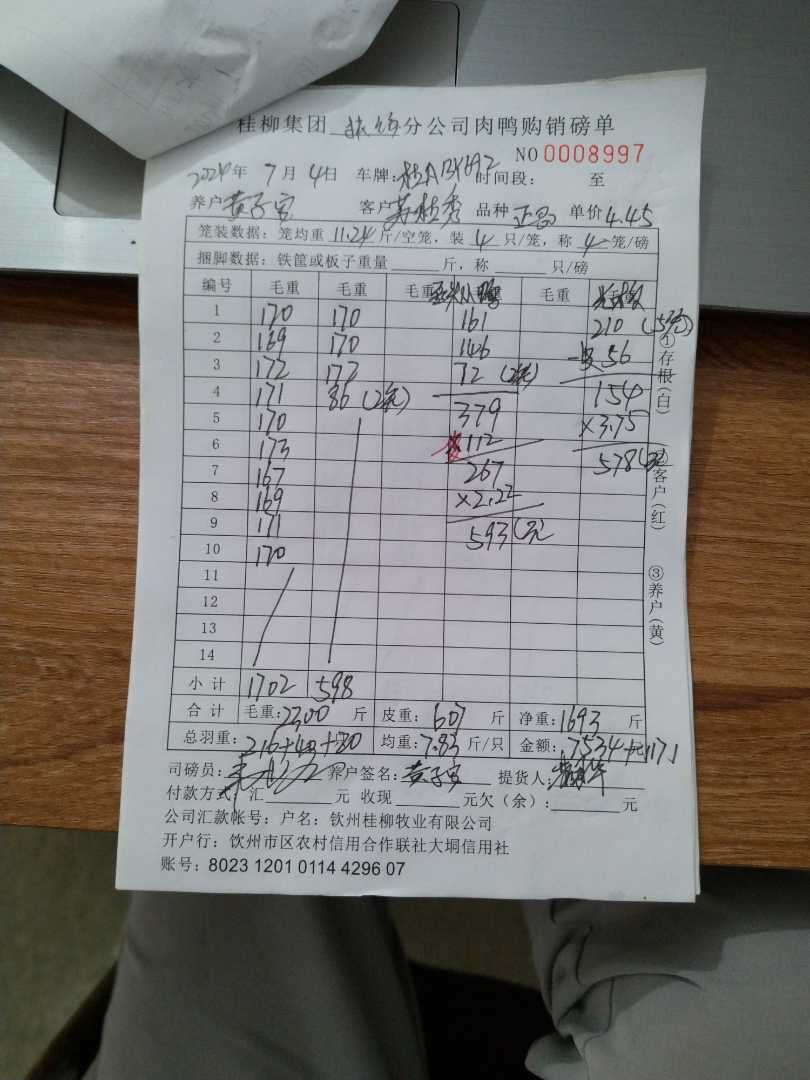 桂柳集团 分公司肉鸭购销磅单
NO 0008997
2024年 7月 4日 车牌: 时间段: 至
养户 黄子宾 客户 品种 正品 单价 4.45
笼装数据: 笼均重 11.24 斤/空笼, 装 4 只/笼, 称 4 笼/磅
捆脚数据: 铁筐或板子重量 斤, 称 只/磅
编号 毛重 毛重 毛重 毛重
1 170 170 161 210
2 169 170 146 56
3 172 172 72 154
4 171 86 379 ×3.75
5 170 112 578(元)
6 173 267
7 167 ×2.22
8 169 593(元)
9 171
10 170
11
12
13
14
小计 1702 598
合计 毛重: 2300 斤 皮重: 607 斤 净重: 1693 斤
总羽重: 216+40+20 均重: 7.83 斤/只 金额: 7534元
司磅员: 养户签名: 黄子宾 提货人:
付款方式: 汇 元 收现 元欠(余): 元
公司汇款帐号: 户名: 钦州桂柳牧业有限公司
开户行: 钦州市区农村信用合作联社大垌信用社
账号: 8023 1201 0114 4296 07
①存根(白)
②客户(红)
③养户(黄